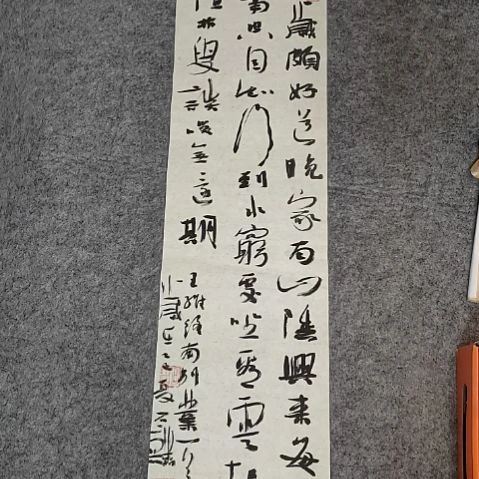 歲頗好道晚家南山陲興來每
事空自知行到水窮處坐看雲
值林叟談笑無還期
王維終南別業一
歲在之夏